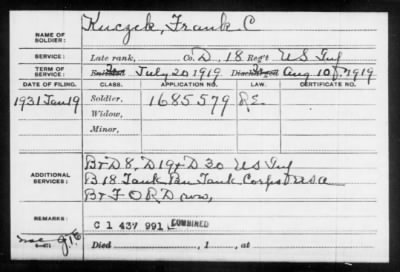 NAME OF SOLDIER: Kuczek, Frank C
SERVICE: Late rank, Co. D, 18 Reg't US Inf
TERM OF SERVICE: Enlisted July 20 1919 Discharged Aug 10, 1919
DATE OF FILING. CLASS. APPLICATION NO. LAW. CERTIFICATE NO.
1931 Jan 19 Soldier, 1685579 R.E.
Widow,
Minor,
ADDITIONAL SERVICES: Br D 8, D 19 & D 30 US Inf
B 18 Tank Bn Tank Corps USA
Br F O R D
REMARKS: C 1 437 991 COMBINED
Died , 1 , at